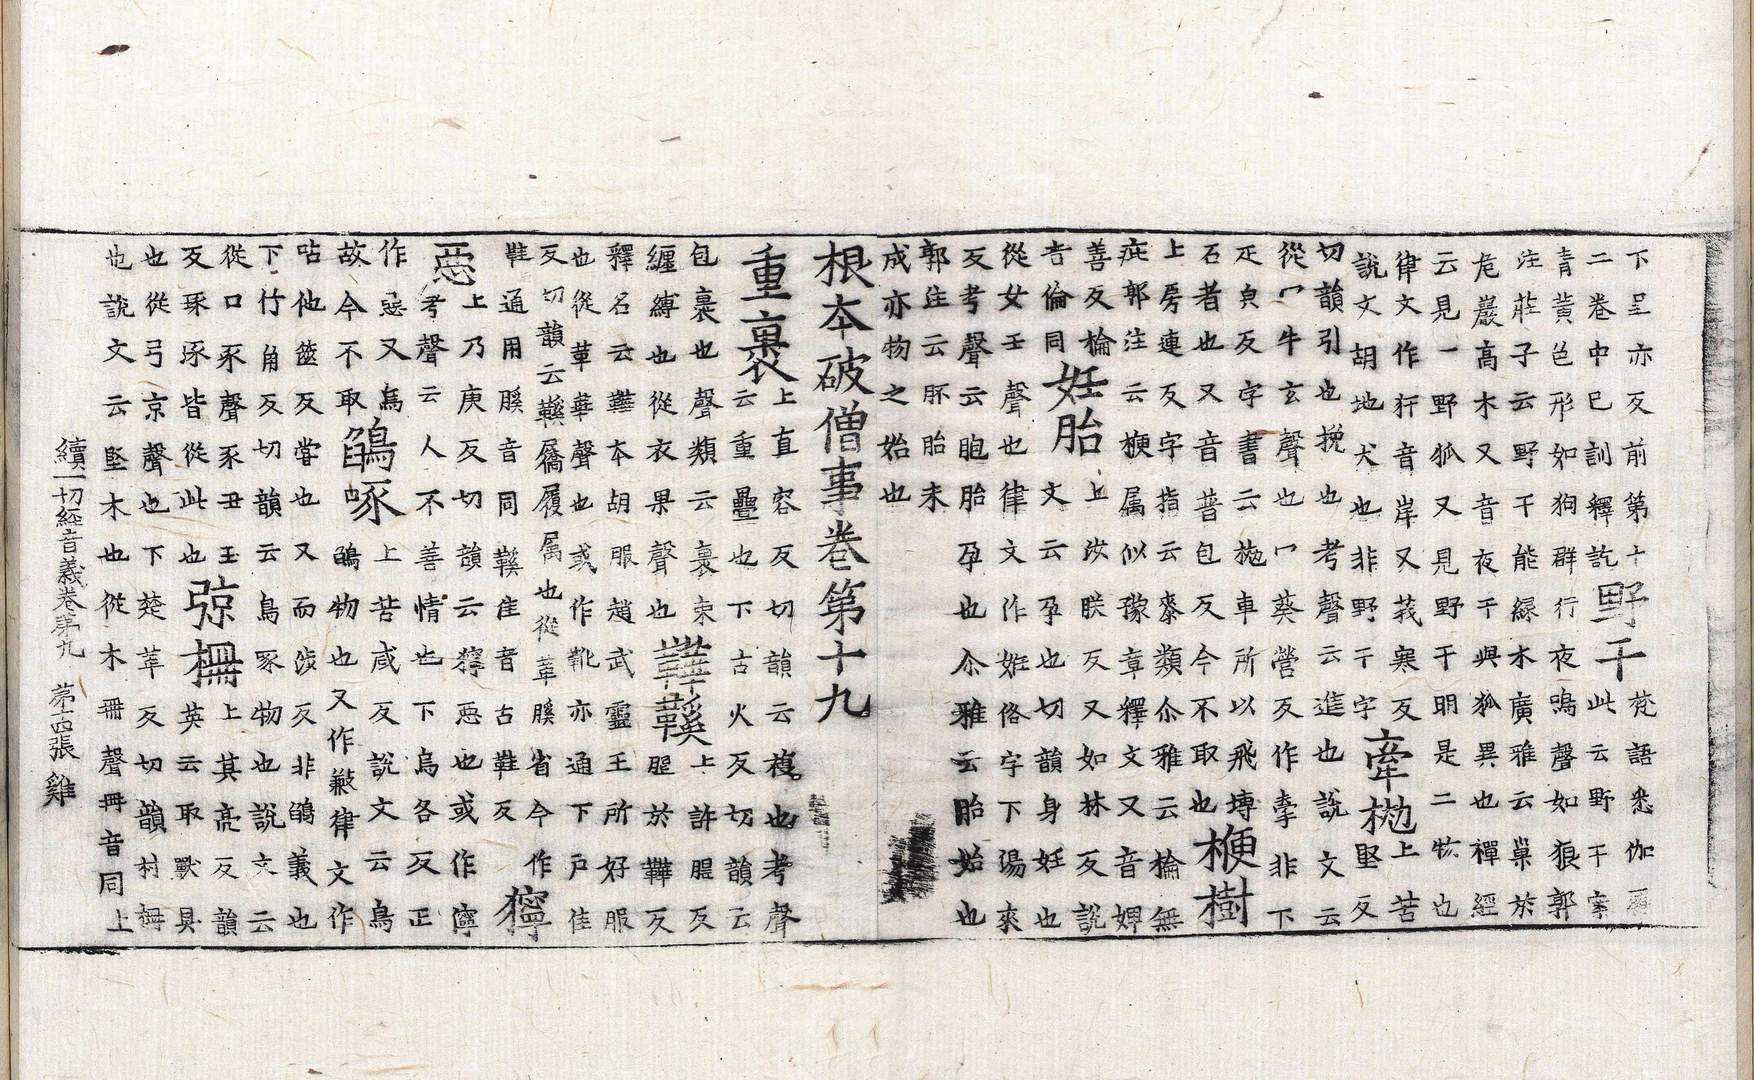 下呈亦反前第十
二卷中已訓釋訖
野干
梵語悉伽羅
此云野干案
青黃色形如狗群行夜鳴聲如狼郭
注莊子云野干能緣木廣雅云巢於
危巖高木又音夜干與狐異也禪經
云見一野狐又見野干明是二物也
律文作犴音岸又莪寒反
說文胡地犬也非野干字
牽拋
上苦
堅反
切韻引也挽也考聲云進也說文云
從冖牛玄聲也冖葵營反作㩃非下
疋皃反字書云拋車所以飛塼
石者也又音普包反今不取也
楩樹
上房連反字指云黍類尒雅云楄無
疵郭注云楩属似豫章釋文又音婢
善反楄
音倫同
妊胎
上汝朕反又如林反說
文云孕也切韻身妊也
從女壬聲也律文作姙俗字下湯來
反考聲云胞胎孕也尒雅云胎始也
郭注云胚胎未
成亦物之始也
根本破僧事卷第十九
重裹
上直容反切韻云複也考聲
云重疊也下古火反切韻云
包裹也聲類云裹束
纏縛也從衣果聲也
鞾鞵
上許胆反
胆於鞾反
釋名云鞾本胡服趙武靈王所好服
也從革華聲也或作靴亦通下戶佳
反切韻云鞵屩履属也從革膎省今作
鞋通用膎音同鞵佳音古鞋反
獰
惡
上乃庚反切韻云獰惡也或作儜
考聲云人不善情也下烏各反正
作惡又烏
故今不取
鵮啄
上苦咸反說文云鳥
鵮物也又作㪠律文作
呫他篋反嘗也又而涉反非鵮義也
下竹角反切韻云鳥啄物也說文云
從口豕聲豕丑玉
反琢涿皆從此也
弶柵
上其亮反韻
英云取獸具
也從弓京聲也下楚革反切韻村柵
也說文云堅木也從木冊聲冊音同上
續一切經音義卷第九 第十四張 雞